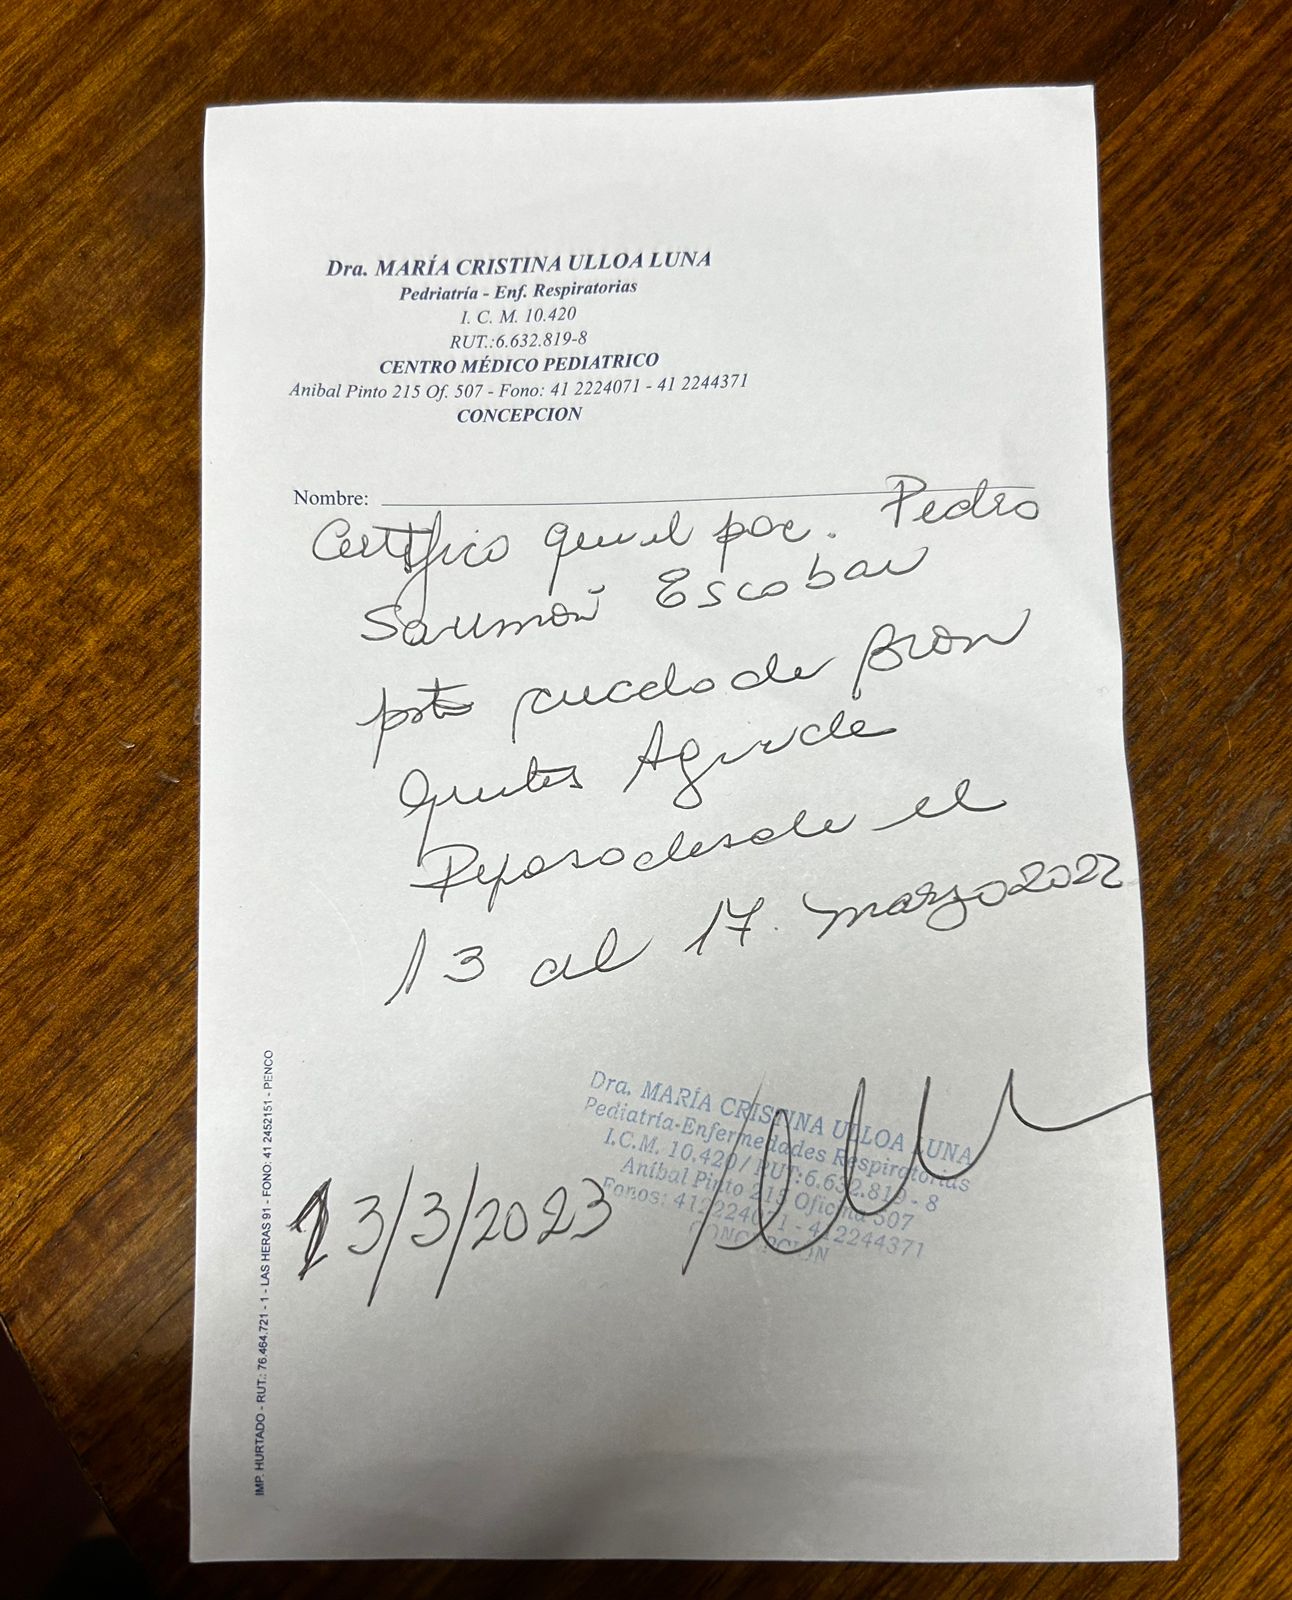 Dra. MARÍA CRISTINA ULLOA LUNA
Pedriatría - Enf. Respiratorias
I. C. M. 10.420
RUT.:6.632.819-8
CENTRO MÉDICO PEDIATRICO
Anibal Pinto 215 Of. 507 - Fono: 41 2224071 - 41 2244371
CONCEPCION
Nombre:
Certifico que el pac. Pedro
Escobar
de Bron
Aguda
Reposo desde el
13 al 17. marzo 2022
Dra. MARÍA CRISTINA ULLOA LUNA
Pediatría-Enfermedades Respiratorias
I.C.M. 10.420 / RUT:6.632.819 - 8
Aníbal Pinto 215 Oficina 507
Fonos: 41 - 412244371
CONCEPCION
13/3/2023
IMP. HURTADO - RUT.: 76.464.721 - 1 - LAS HERAS 91 - FONO: 41 2452151 - PENCO